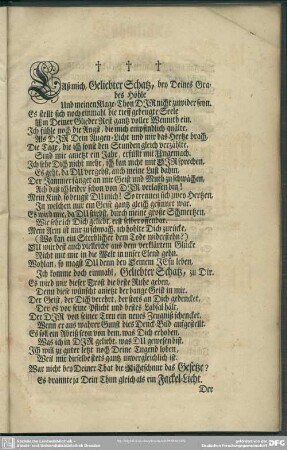 † † †
Laß mich, Geliebter Schatz, bey Deines Gra-
bes Höhle
Und meinen Klage-Thon DIR nicht zuwider seyn.
Es stellt sich noch einmahl die tieff gebeugte Seele
Um Deiner Glieder Rest ganz voller Wemuth ein.
Ich fühle noch die Angst, die mich empfindlich quälte,
Als DIR Dein Augen-Licht und mir das Hertze brach,
Die Tage, die ich sonst den Stunden gleich gezählte,
Sind mir anietzt ein Jahr, erfüllt mit Ungemach.
Ich sehe Dich nicht mehr, ich kan nicht mit DIR sprechen,
Es geht, da DU vergehst, auch meine Lust dahin.
Der Jammer fänget an mir Geist und Muth zu schwächen,
Ach daß ich leider schon von DIR verlassen bin!
Mein Kind, so beugst DU mich! So trennen sich zwey Hertzen,
In welchen nur ein Geist ganz gleich gesinnet war.
Es wird mir, da DU stirbst, durch meine große Schmertzen,
Wie sehr ich Dich geliebt, erst selber offenbar.
Mein Arm ist mir zu schwach, ich hohlte Dich zurücke,
(Wo kan ein Sterblicher dem Tode widerstehn?)
DU würdest auch vielleicht aus dem verklärten Glücke
Nicht mit mir in die Welt in unser Elend gehn.
Wohlan, so magst DU denn bey Deinem JEsu leben,
Ich komme doch einmahl, Geliebter Schatz, zu Dir.
Es wird mir dieser Trost die beste Ruhe geben,
Denn diese wünscht anietzt der bange Geist in mir.
Der Geist, der Dich verehrt, der stets an Dich gedencket,
Der es vor seine Pflicht und bestes Labsal hält,
Der DIR von seiner Treu ein neues Zeugniß schencket,
Wenn er aus wahrer Gunst dies Denck-Bild aufgestellt.
Es soll ein Abriß seyn von dem, was Dich erhoben,
Was ich an DIR geliebt, was DU gewesen bist.
Ich will zu guter letzt noch Deine Tugend loben,
Weil mir dieselbe stets gantz unvergleichlich ist.
War nicht bey Deiner That die Richtschnur das Gesetze?
Es brannte ja Dein Thun gleich als ein Fackel-Licht.
Der